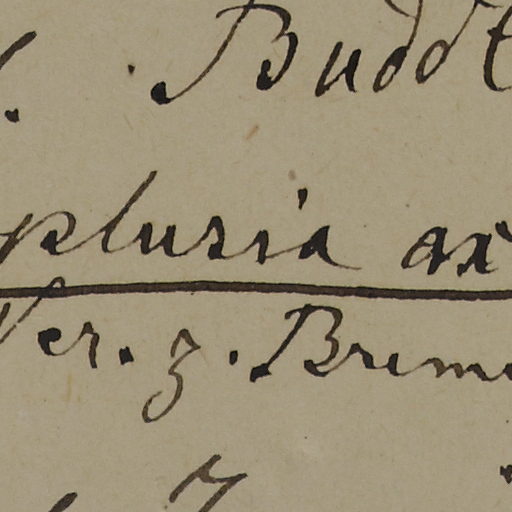 . Budd
plusia ax
Ver. z. Brem